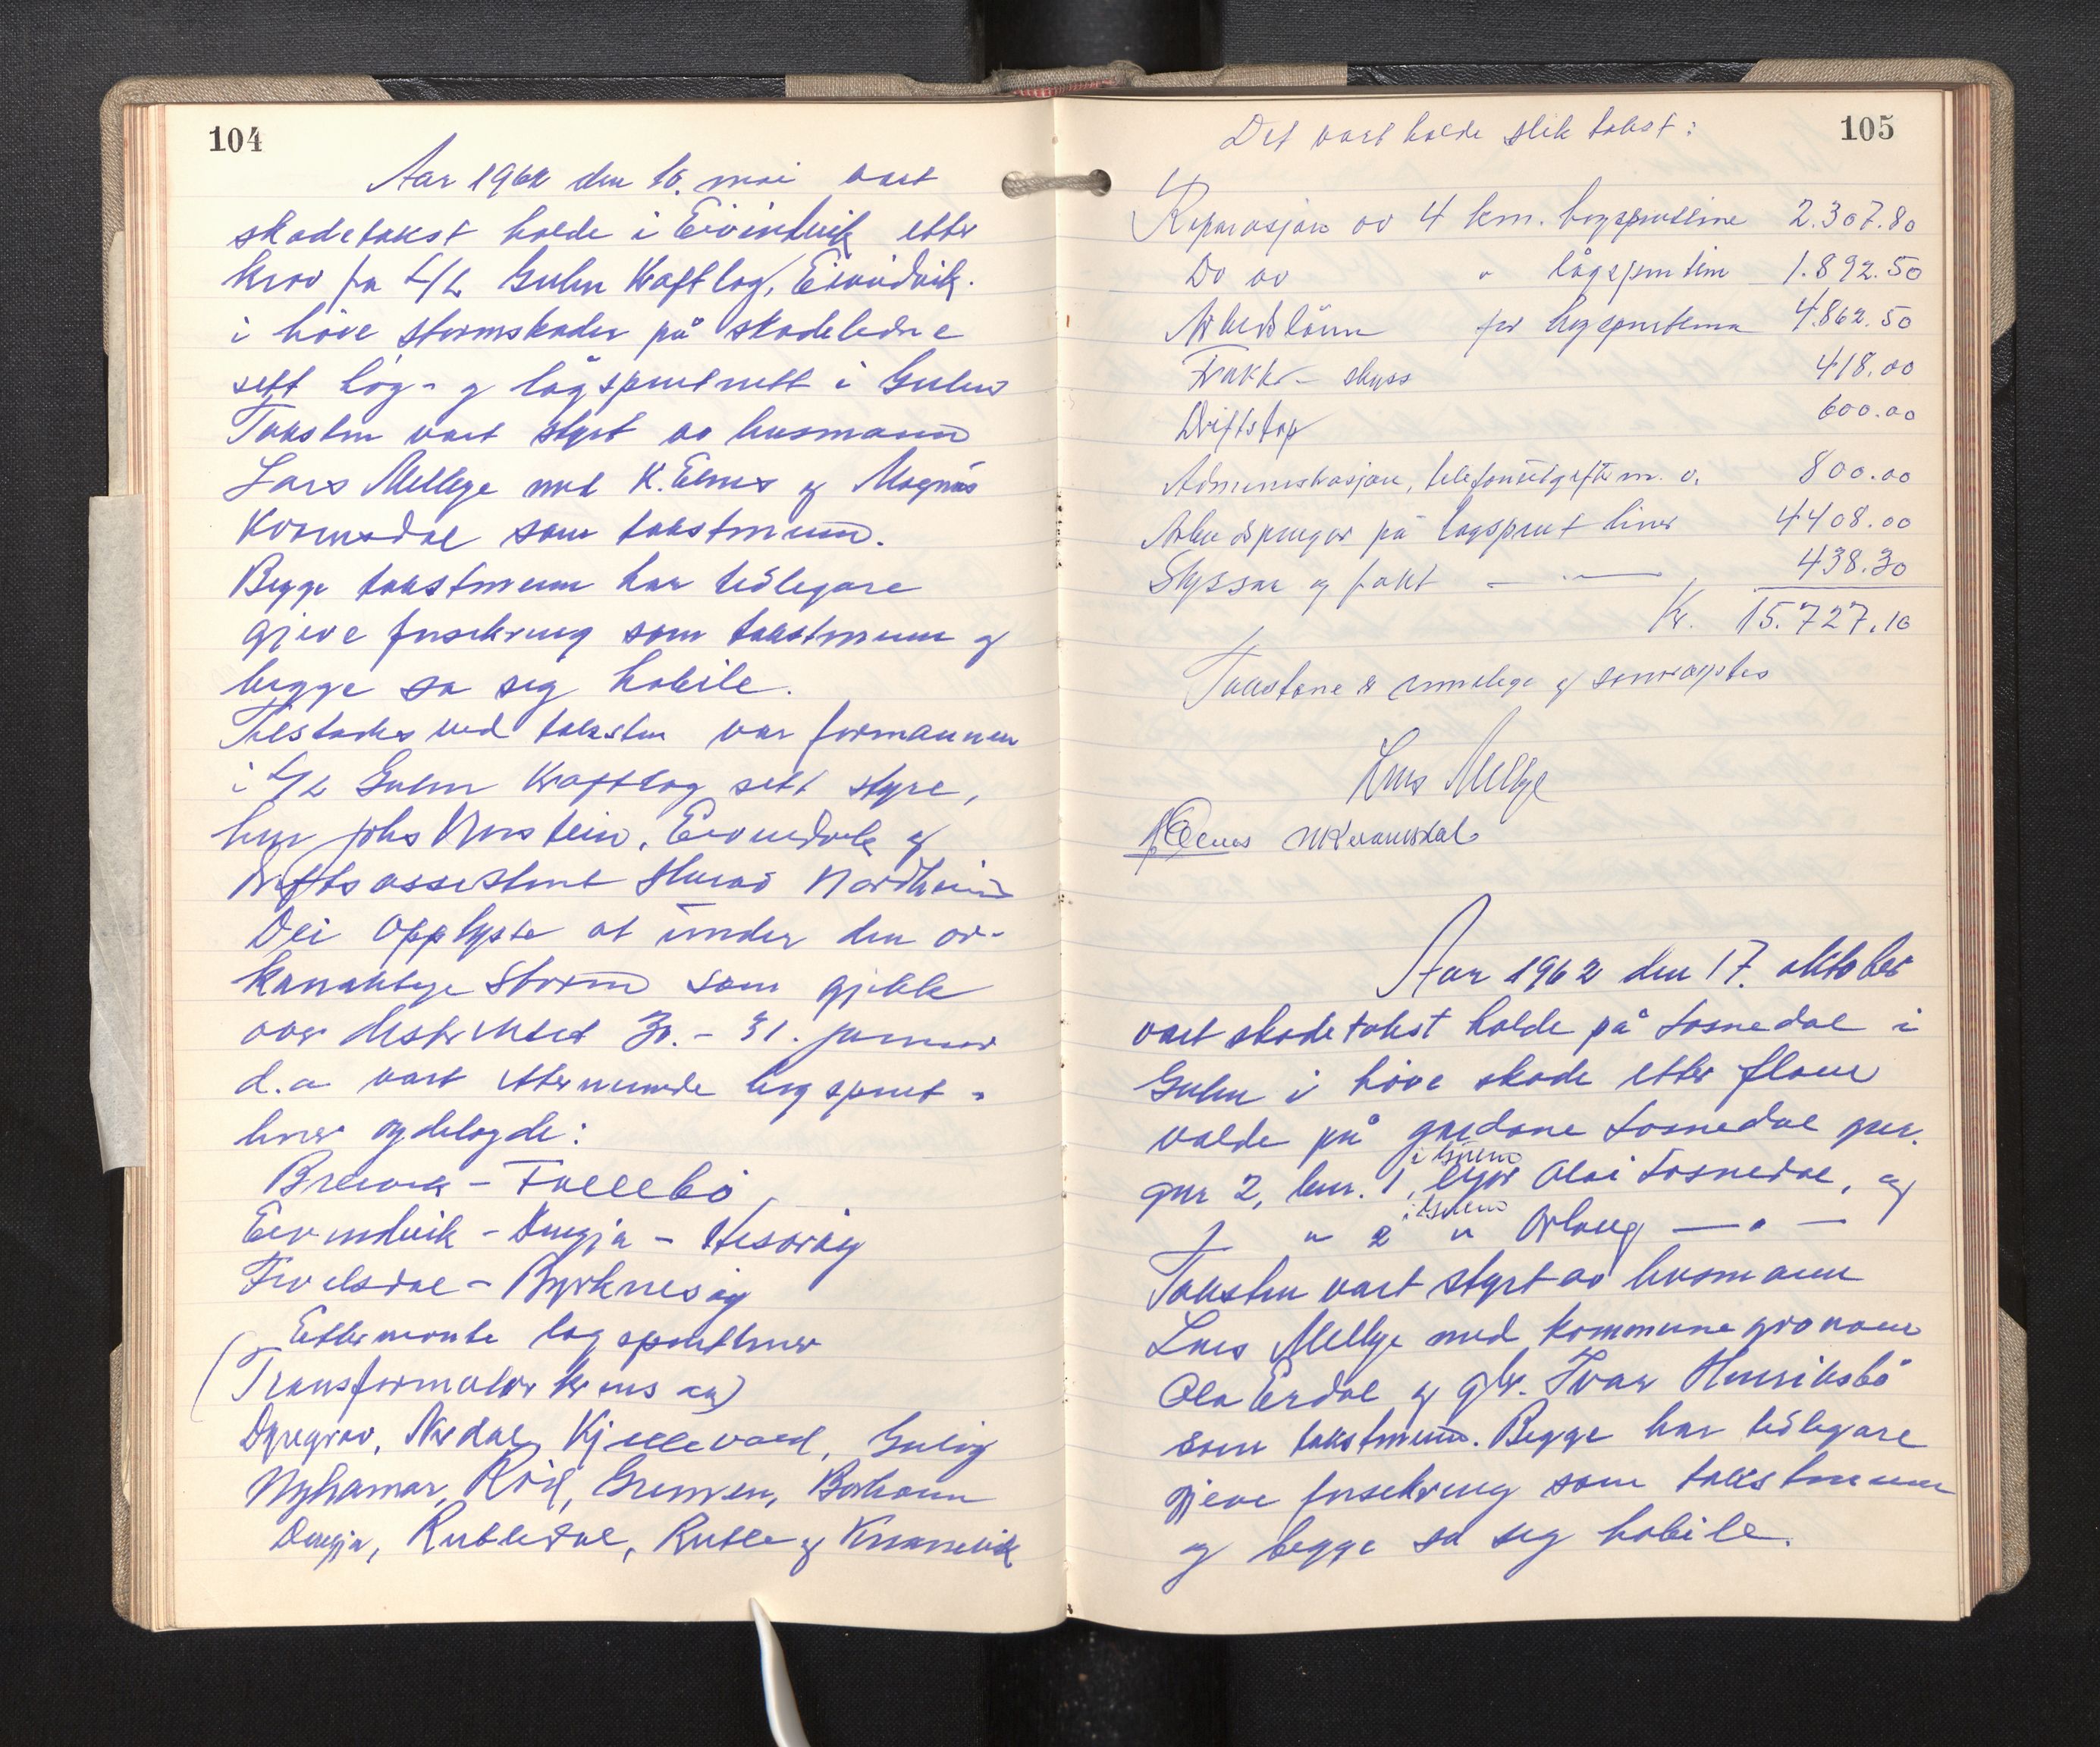 104
Aar 1962 den 10. mai vart
skadetakst halde i Eivindvik etter
krav fra L/L Gulen Kraftlag, Eivindvik.
i høve stormskader på skadeledne
sitt høg- og lågspentnett i Gulen
Taksten vart styrt av lensmann
Lars Mellge med K. Elnes og Magnus
Kvamsdal som takstmenn.
Begge takstmenn har tidlegare
gjeve forsikring som takstmenn og
begge sa seg habile.
Tilstades ved taksten var formannen
i L/L Gulen Kraftlag sitt styre,
herr Johs Ornstein, Eivindvik og
driftsassistent Nordheim
Dei opplyste at under den or-
kanaktige storm som gjekk
over distriktet 30. - 31. januar
d.a vart etternemnde høgspent-
liner øydelagde:
Brekke - Takkebø
Eivindvik - Dingja - Hisarøy
Trovelsdal - Byrknesøy
Etternemnte lagspentliner
(Transformator krins as)
Dyregrov, Nordal, Kjellevold, Guløy
Nyhamar, Røil, Grinsen, Borhaun
Dingja, Rutledal, Rutle og Kvamsvik
105
Det vart halde slik takst:
Reparasjon av 4 km. høgspentline 2.307.80
Do av " lågspentline 1.892.50
Arbeidslønn for høgspentlina 4.862.50
Frakt - skyss 418.00
Driftstap 600.00
Administrasjon, telefonutgifter m. v. 800.00
Arbeidspengar på lagspent liner 4408.00
Skyssar og frakt — " — 438.30
Kr. 15.727.10
Takstane er rimelege og samrøystes
Lars Mellge
K Elnes M Kvamsdal
Aar 1962 den 17. oktober
vart skadetakst halde på Tosnedal i
Gulen i høve skade etter flaum
valde på gardane Tosnedal gnr.
i Gulen
gnr 2, bnr. 1, eigar Olai Tosnedal, og
i Gulen
" 2 " Orlaug — " —
Taksten vart styrt av lensmann
Lars Mellge med kommuneagronom
Ola Erdal og gbr. Ivar Henriksbø
som takstmenn. Begge har tidlegare
gjeve forsikring som takstmenn
og begge sa seg habile.